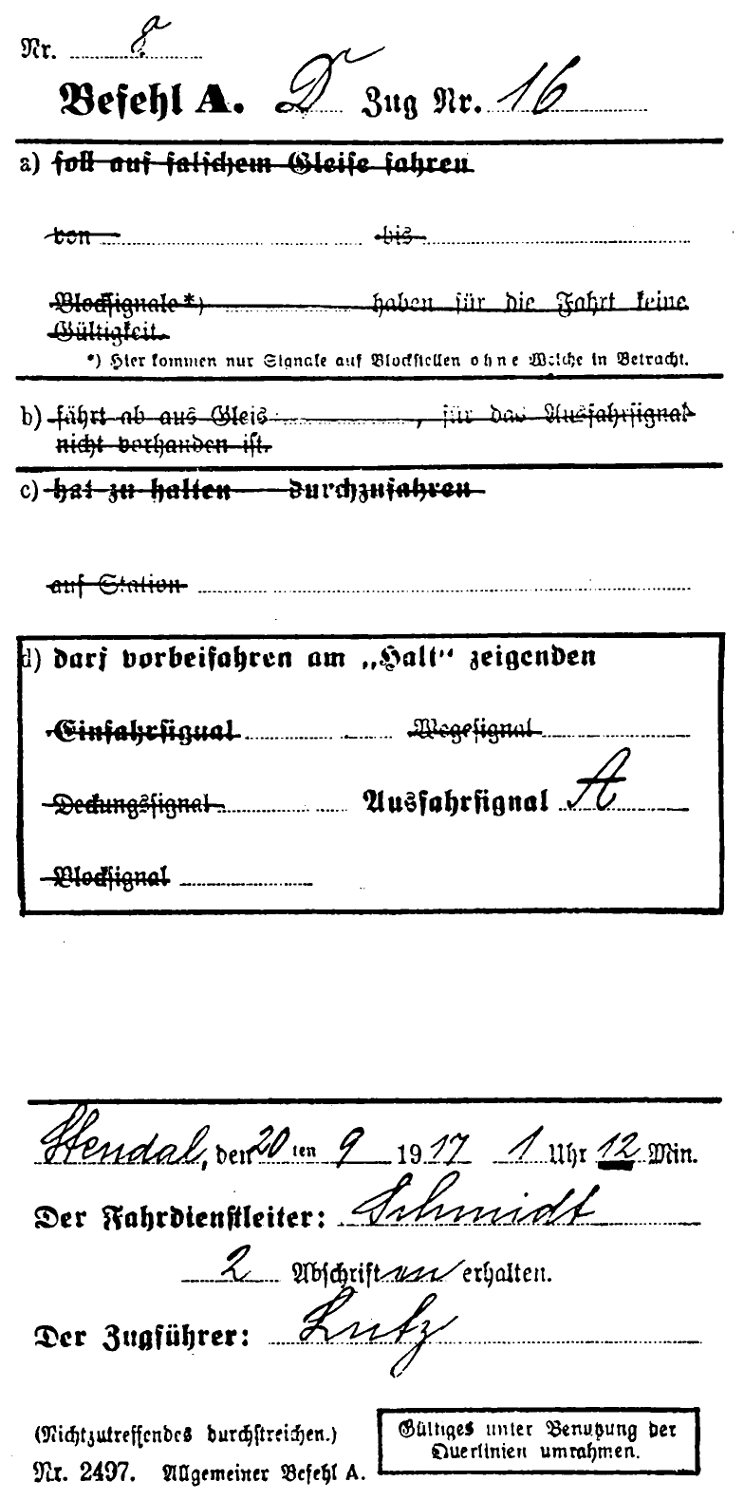 Nr. 8
Befehl A. D Zug Nr. 16
a) soll auf falschem Gleise fahren
von bis
Blocksignale*) haben für die Fahrt keine
Gültigkeit.
*) Hier kommen nur Signale auf Blockstellen ohne Weiche in Betracht.
b) fährt ab aus Gleis , für das Ausfahrsignal
nicht vorhanden ist.
c) hat zu halten durchzufahren
auf Station
d) darf vorbeifahren am „Halt“ zeigenden
Einfahrsignal Wegesignal
Deckungssignal Ausfahrsignal A
Blocksignal
Stendal, den 20 ten 9 1917 1 Uhr 12 Min.
Der Fahrdienstleiter: Schmidt
2 Abschriften erhalten.
Der Zugführer: Lutz
(Nichtzutreffendes durchstreichen.)
Gültiges unter Benutzung der
Querlinien umrahmen.
Nr. 2497. Allgemeiner Befehl A.